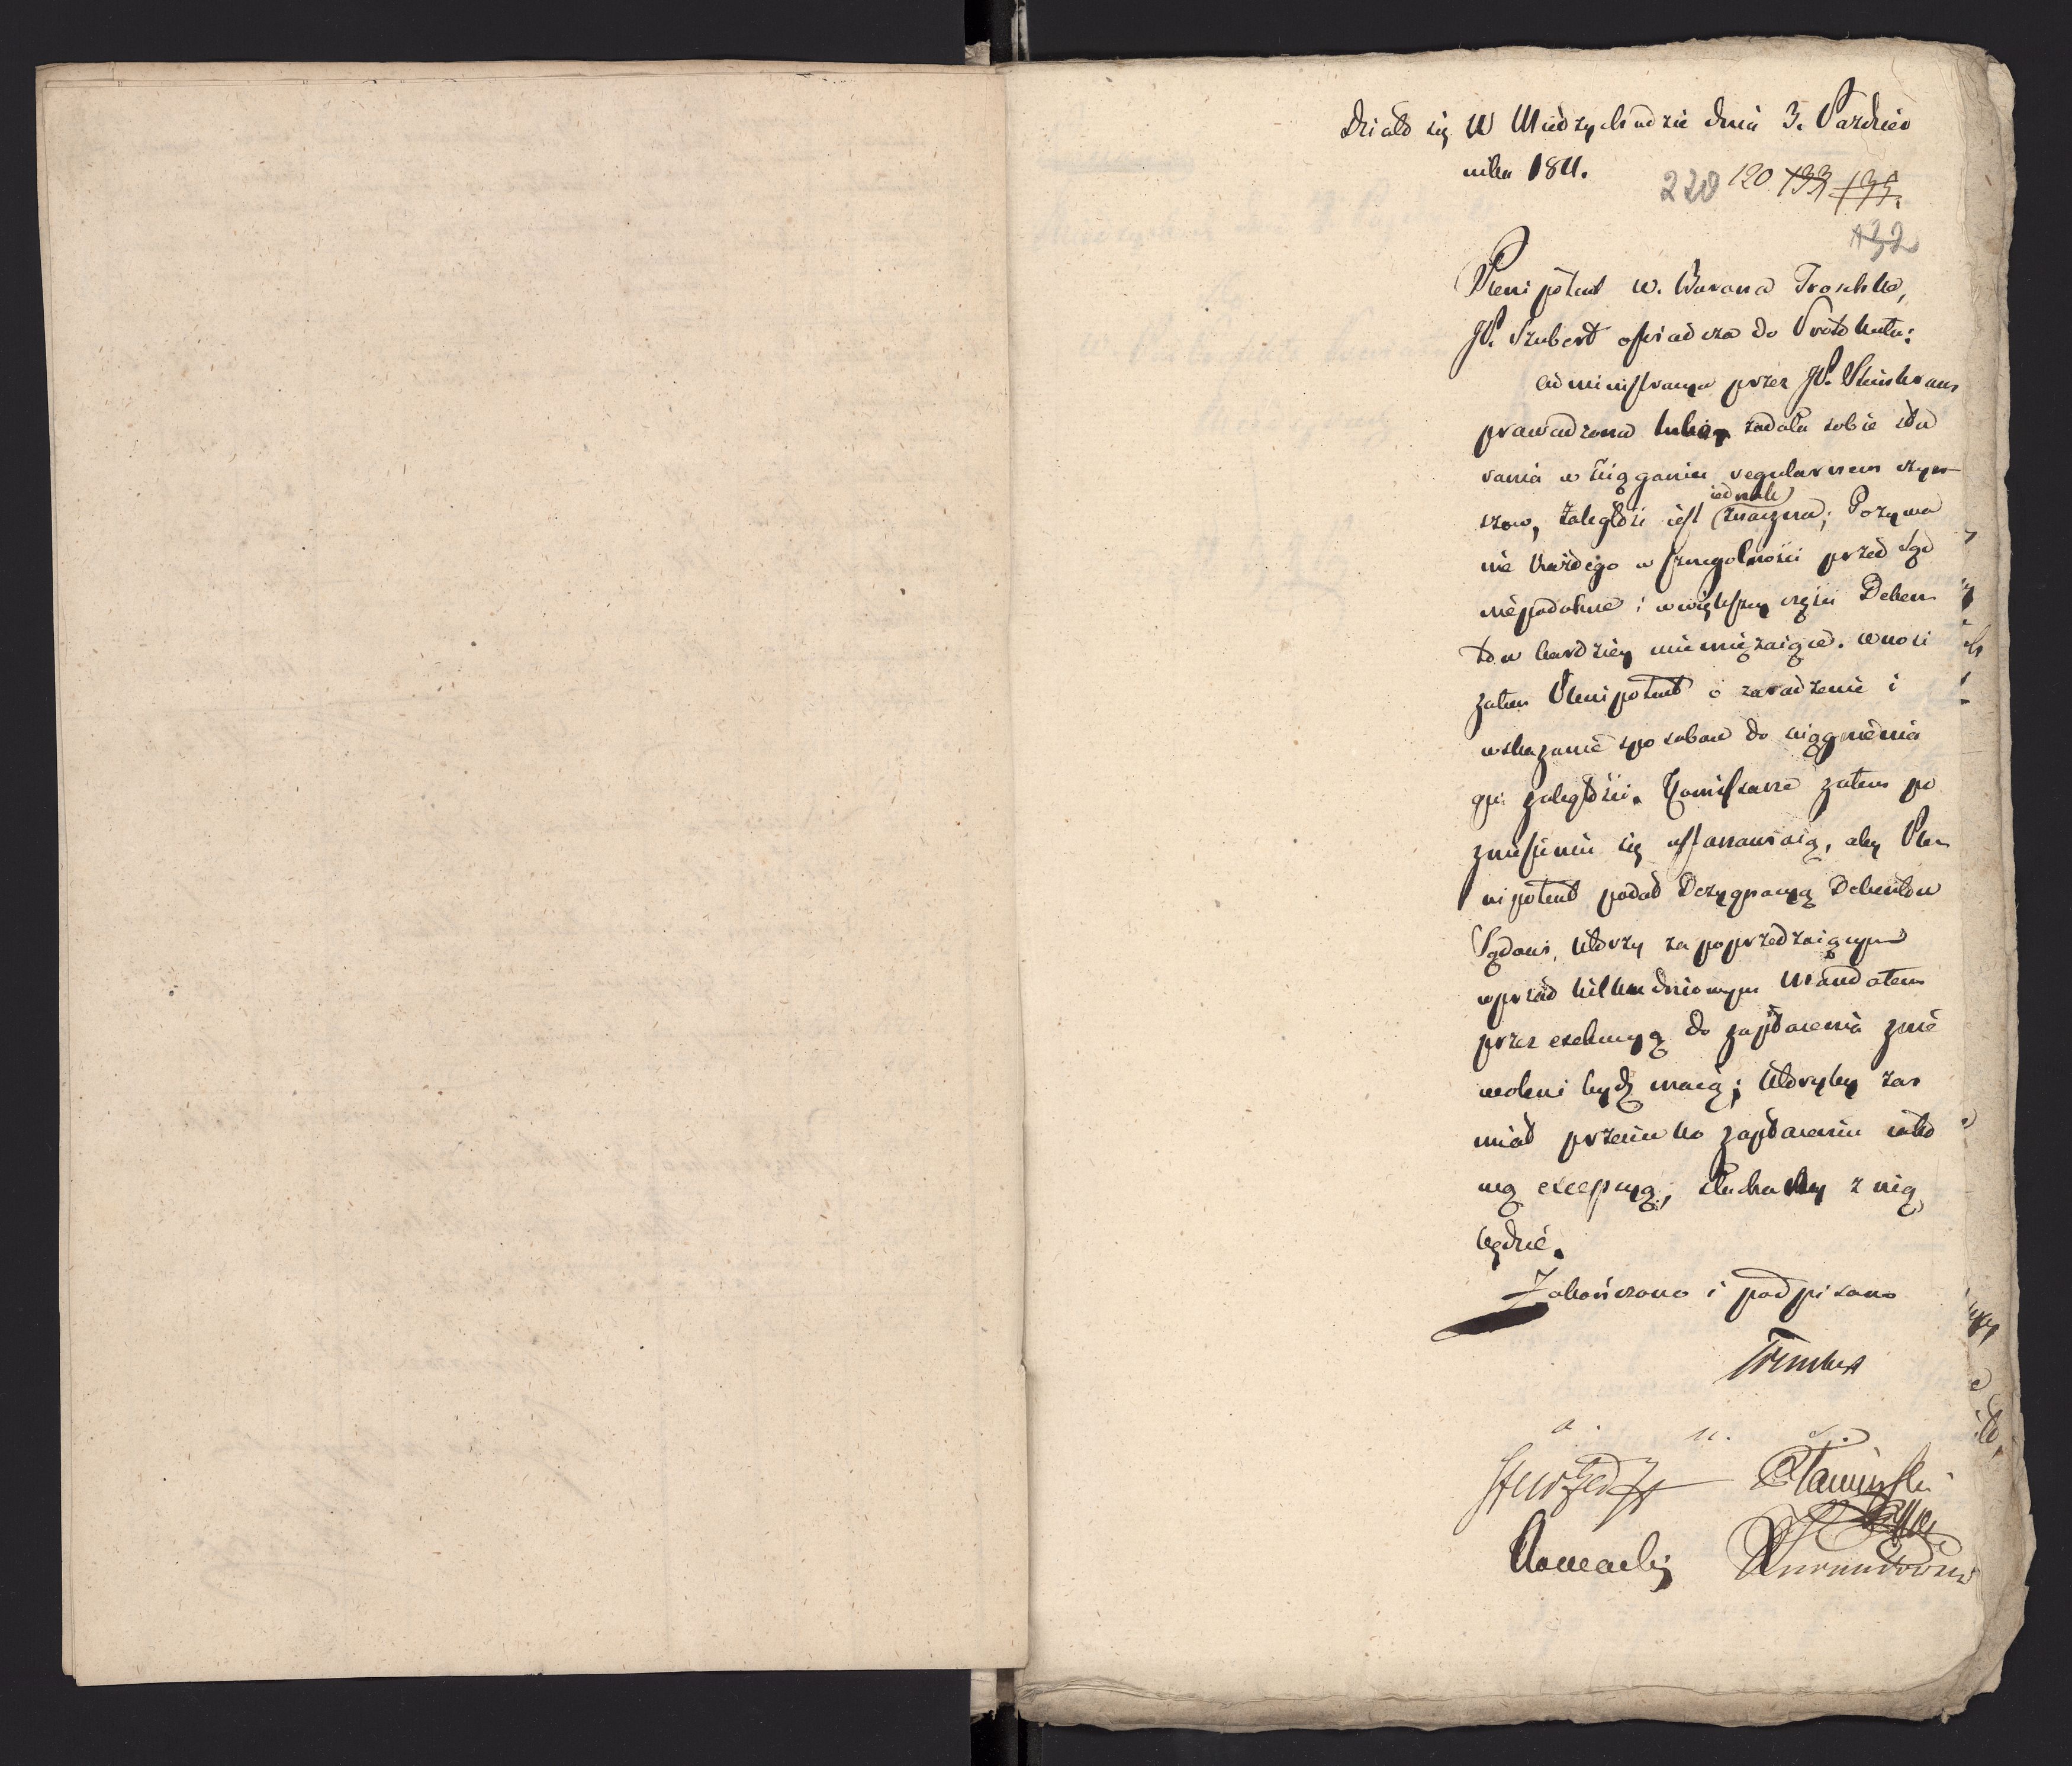 Działo się W Międzychodzie dnia 3. Pazdzier
nika 1811.
220 120 133 135.
132
Plenipotent W. Barona Troschke,
JP. Szubert oświadcza do Protokułu:
administracya przez JP.
prowadzona zadała sobie sta
rania w ściąganiu regularnem czyn
szow, zaległość iest iednak znaczna; Pozywa
nie każdego w szczegolności przed Sąd
niepodobne i wwiększey części Deben
tow bardziey niemięzaiące. Wnosi
zatem Plenipotent o zaradzenie i
wskazanie sposobow do ciągnienia
zaległości. Komissarze zatem po
zniesieniu się ustanawiaią, aby Ple
nipotent podał Dezygnacyą Debentow
Sądowi, ktorzy za poprzedzaiącym
wprzód kilkudniowym Mandatem
przez exekucyą do zapłacenia znie
woleni bydź maią; ktoryby zas
miał przeciwko zapłaceniu iako
wą excepcyą, słuchany z nią
będzie.
Zakończono i podpisano
a. u. s.